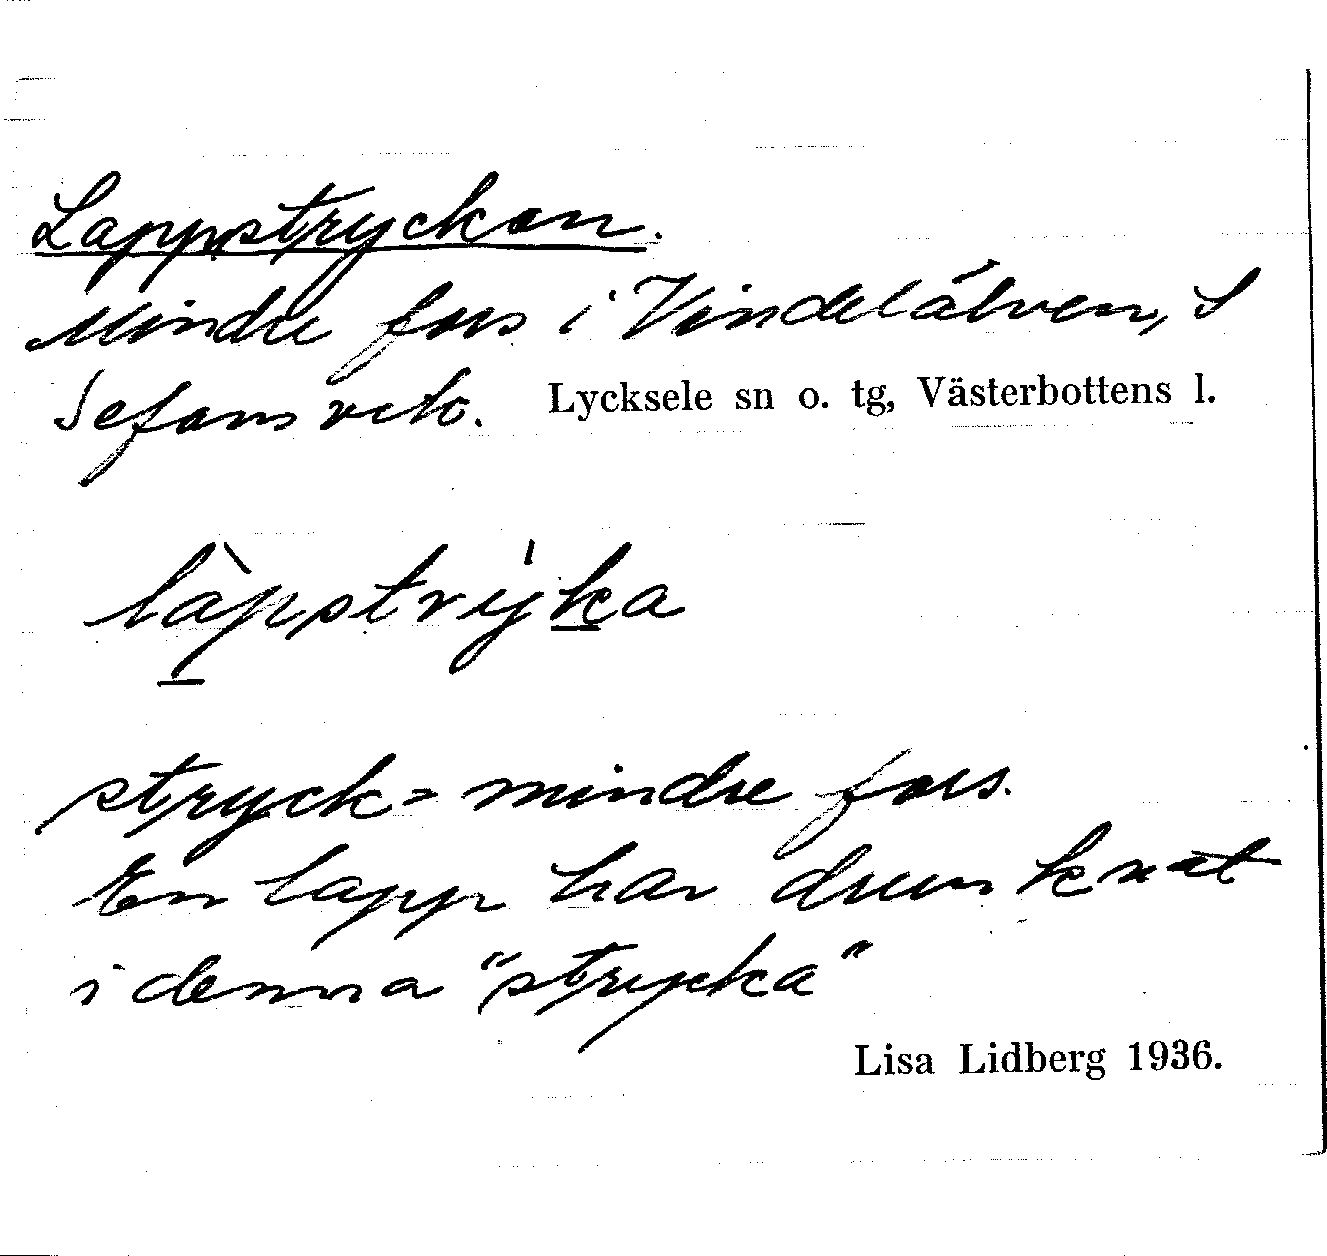 Lappstryckan.
Mindre fors i Vindelälven, S
Sefansvelo. Lycksele sn o. tg, Västerbottens l.
làpstrýka
stryck = mindre fors.
En lapp har drunknat
i denna "strycka"
Lisa Lidberg 1936.